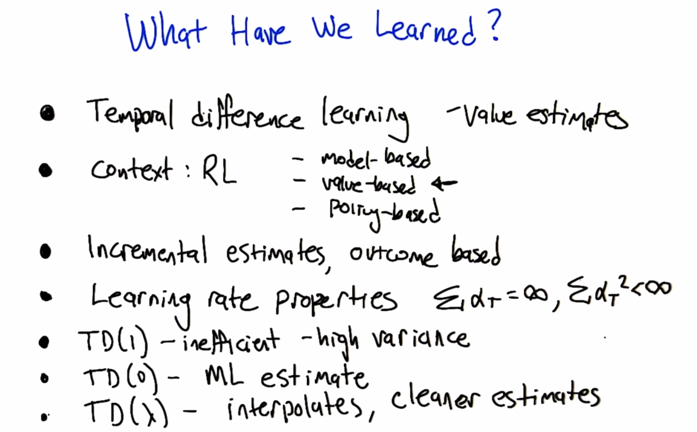 What Have We Learned?
• Temporal difference learning - Value estimates
• Context: RL - model-based
- value-based ←
- policy-based
• Incremental estimates, outcome based
• Learning rate properties Σ α_T = ∞, Σ α_T² < ∞
• TD(1) - inefficient - high variance
• TD(0) - ML estimate
• TD(λ) - interpolates, cleaner estimates